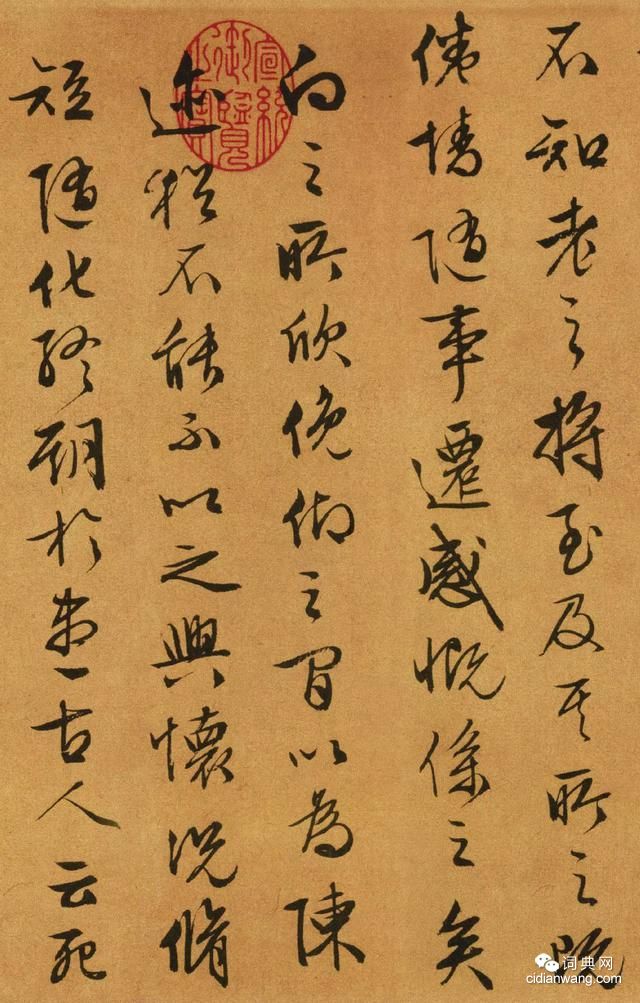 不知老之將至及其所之既
倦情隨事遷感慨係之矣
向之所欣俛仰之間以為陳
迹猶不能不以之興懷況脩
短隨化終期於盡古人云死
宣統御覽之寶
词典网
cidianwang.com